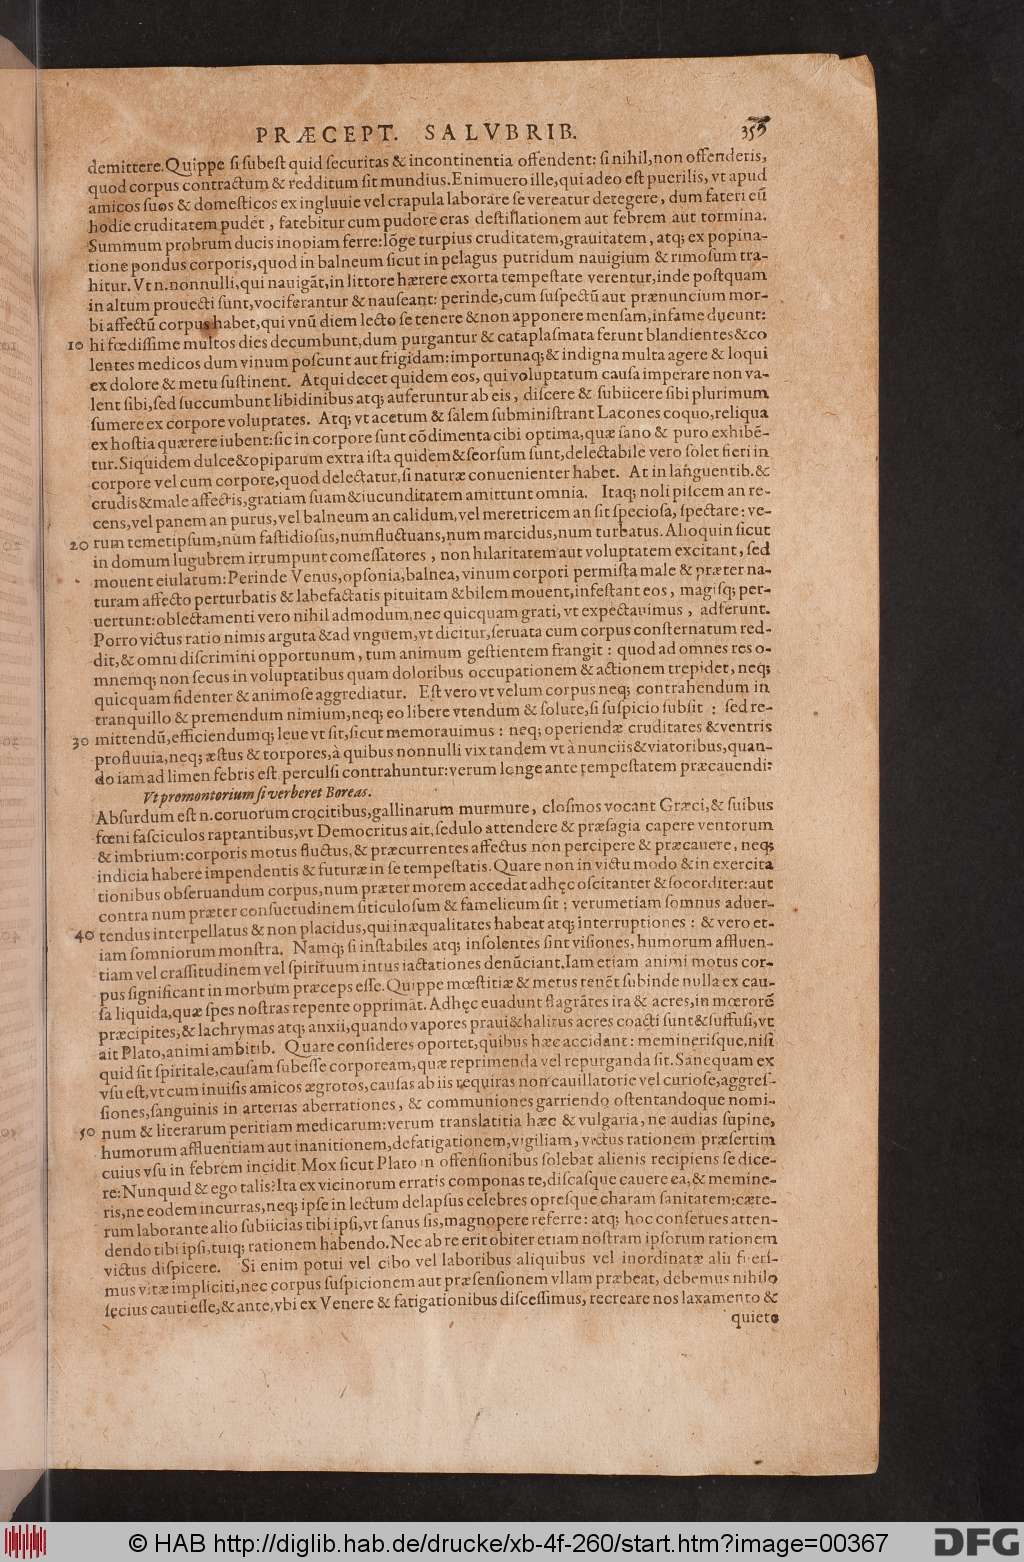 PRÆCEPT. SALVBRIB. 359
demittere. Quippe si subest quid securitas & incontinentia offendent: si nihil, non offenderis,
quod corpus contractum & redditum sit mundius. Enimuero ille, qui adeo est puerilis, vt apud
amicos suos & domesticos ex ingluuie vel crapula laborare se vereatur detegere, dum fateri eū
hodie cruditatem pudet, fatebitur cum pudore cras destillationem aut febrem aut tormina.
Summum probrum ducis inopiam ferre: lōge turpius cruditatem, grauitatem, atq; ex popina-
tione pondus corporis, quod in balneum sicut in pelagus putridum nauigium & rimosum tra-
hitur. Vt n. nonnulli, qui nauigāt, in littore hærere exorta tempestate verentur, inde postquam
in altum prouecti sunt, vociferantur & nauseant: perinde, cum suspectū aut prænuncium mor-
bi affectū corpus habet, qui vnū diem lecto se tenere & non apponere mensam, infame ducunt:
10 hi fœdissime multos dies decumbunt, dum purgantur & cataplasmata ferunt blandientes & co
lentes medicos dum vinum poscunt aut frigidam: importunaq; & indigna multa agere & loqui
ex dolore & metu sustinent. Atqui decet quidem eos, qui voluptatum causa imperare non va-
lent sibi, sed succumbunt libidinibus atq; auferuntur ab eis, discere & subiicere sibi plurimum
sumere ex corpore voluptates. Atq; vt acetum & salem subministrant Lacones coquo, reliqua
ex hostia quærere iubent: sic in corpore sunt cōdimenta cibi optima, quæ sano & puro exhibē-
tur. Siquidem dulce & opiparum extra ista quidem & seorsum sunt, delectabile vero solet fieri in
corpore vel cum corpore, quod delectatur, si naturæ conuenienter habet. At in languentib. &
crudis & male affectis, gratiam suam & iucunditatem amittunt omnia. Itaq; noli piscem an re-
cens, vel panem an purus, vel balneum an calidum, vel meretricem an sit speciosa, spectare: ve-
20 rum temetipsum, num fastidiosus, num fluctuans, num marcidus, num turbatus. Alioquin sicut
in domum lugubrem irrumpunt comessatores, non hilaritatem aut voluptatem excitant, sed
mouent eiulatum: Perinde Venus, opsonia, balnea, vinum corpori permista male & præter na-
turam affecto perturbatis & labefactatis pituitam & bilem mouent, infestant eos, magisq; per-
uertunt: oblectamenti vero nihil admodum, nec quicquam grati, vt expectauimus, adferunt.
Porro victus ratio nimis arguta & ad vnguem, vt dicitur, seruata cum corpus consternatum red-
dit, & omni discrimini opportunum, tum animum gestientem frangit: quod ad omnes res o-
mnemq; non secus in voluptatibus quam doloribus occupationem & actionem trepidet, neq;
quicquam fidenter & animose aggrediatur. Est vero vt velum corpus neq; contrahendum in
tranquillo & premendum nimium, neq; eo libere vtendum & solute, si suspicio subsit: sed re-
30 mittendū, efficiendumq; leue vt sit, sicut memorauimus: neq; operiendæ cruditates & ventris
profluuia, neq; æstus & torpores, à quibus nonnulli vix tandem vt à nunciis & viatoribus, quan-
do iam ad limen febris est perculsi contrahuntur: verum longe ante tempestatem præcauendi:
Vt promontorium si verberet Boreas.
Absurdum est n. coruorum crocitibus, gallinarum murmure, closmos vocant Græci, & suibus
fœni fasciculos raptantibus, vt Democritus ait, sedulo attendere & præsagia capere ventorum
& imbrium: corporis motus fluctus, & præcurrentes affectus non percipere & præcauere, neq;
indicia habere impendentis & futuræ in se tempestatis. Quare non in victu modo & in exercita
tionibus obseruandum corpus, num præter morem accedat adhęc oscitanter & socorditer: aut
contra num præter consuetudinem siticulosum & famelicum sit; verumetiam somnus aduer-
40 tendus interpellatus & non placidus, qui inæqualitates habeat atq; interruptiones: & vero et-
iam somniorum monstra. Namq; si instabiles atq; insolentes sint visiones, humorum affluen-
tiam vel crassitudinem vel spirituum intus iactationes denūciant. Iam etiam animi motus cor-
pus significant in morbum præceps esse. Quippe mœstitiæ & metus tenēt subinde nulla ex cau-
sa liquida, quæ spes nostras repente opprimāt. Adhęc euadunt flagrātes ira & acres, in mœrorē
præcipites, & lachrymas atq; anxii, quando vapores praui & halitus acres coacti sunt & suffusi, vt
ait Plato, animi ambitib. Quare consideres oportet, quibus hæc accidant: memineris­que, nisi
quid sit spiritale, causam subesse corpoream, quæ reprimenda vel repurganda sit. Sanequam ex
vsu est, vt cum inuisis amicos ægrotos, causas ab iis requiras non cauillatorie vel curiose, aggres-
siones, sanguinis in arterias aberrationes, & communiones garriendo ostentandoque nomi-
50 num & literarum peritiam medicarum: verum translatitia hæc & vulgaria, ne audias supine,
humorum affluentiam aut inanitionem, defatigationem, vigiliam, victus rationem præsertim
cuius vsu in febrem incidit Mox sicut Plato in offensionibus solebat alienis recipiens se dice-
re: Nunquid & ego talis? Ita ex vicinorum erratis componas te, discasque cauere ea, & memine-
ris, ne eodem incurras, neq; ipse in lectum delapsus celebres opresque charam sanitatem: cæte-
rum laborante alio subiicias tibi ipsi, vt sanus sis, magnopere referre: atq; hoc conserues atten-
dendo tibi ipsi, tuiq; rationem habendo. Nec ab re erit obiter etiam nostram ipsorum rationem
victus dispicere. Si enim potui vel cibo vel laboribus aliquibus vel inordinatæ alii fuerі-
mus vitæ impliciti, nec corpus suspicionem aut præsensionem vllam præbeat, debemus nihilo
secius cauti esse, & ante, vbi ex Venere & fatigationibus discessimus, recreare nos laxamento &
quieto
© HAB http://diglib.hab.de/drucke/xb-4f-260/start.htm?image=00367
DFG